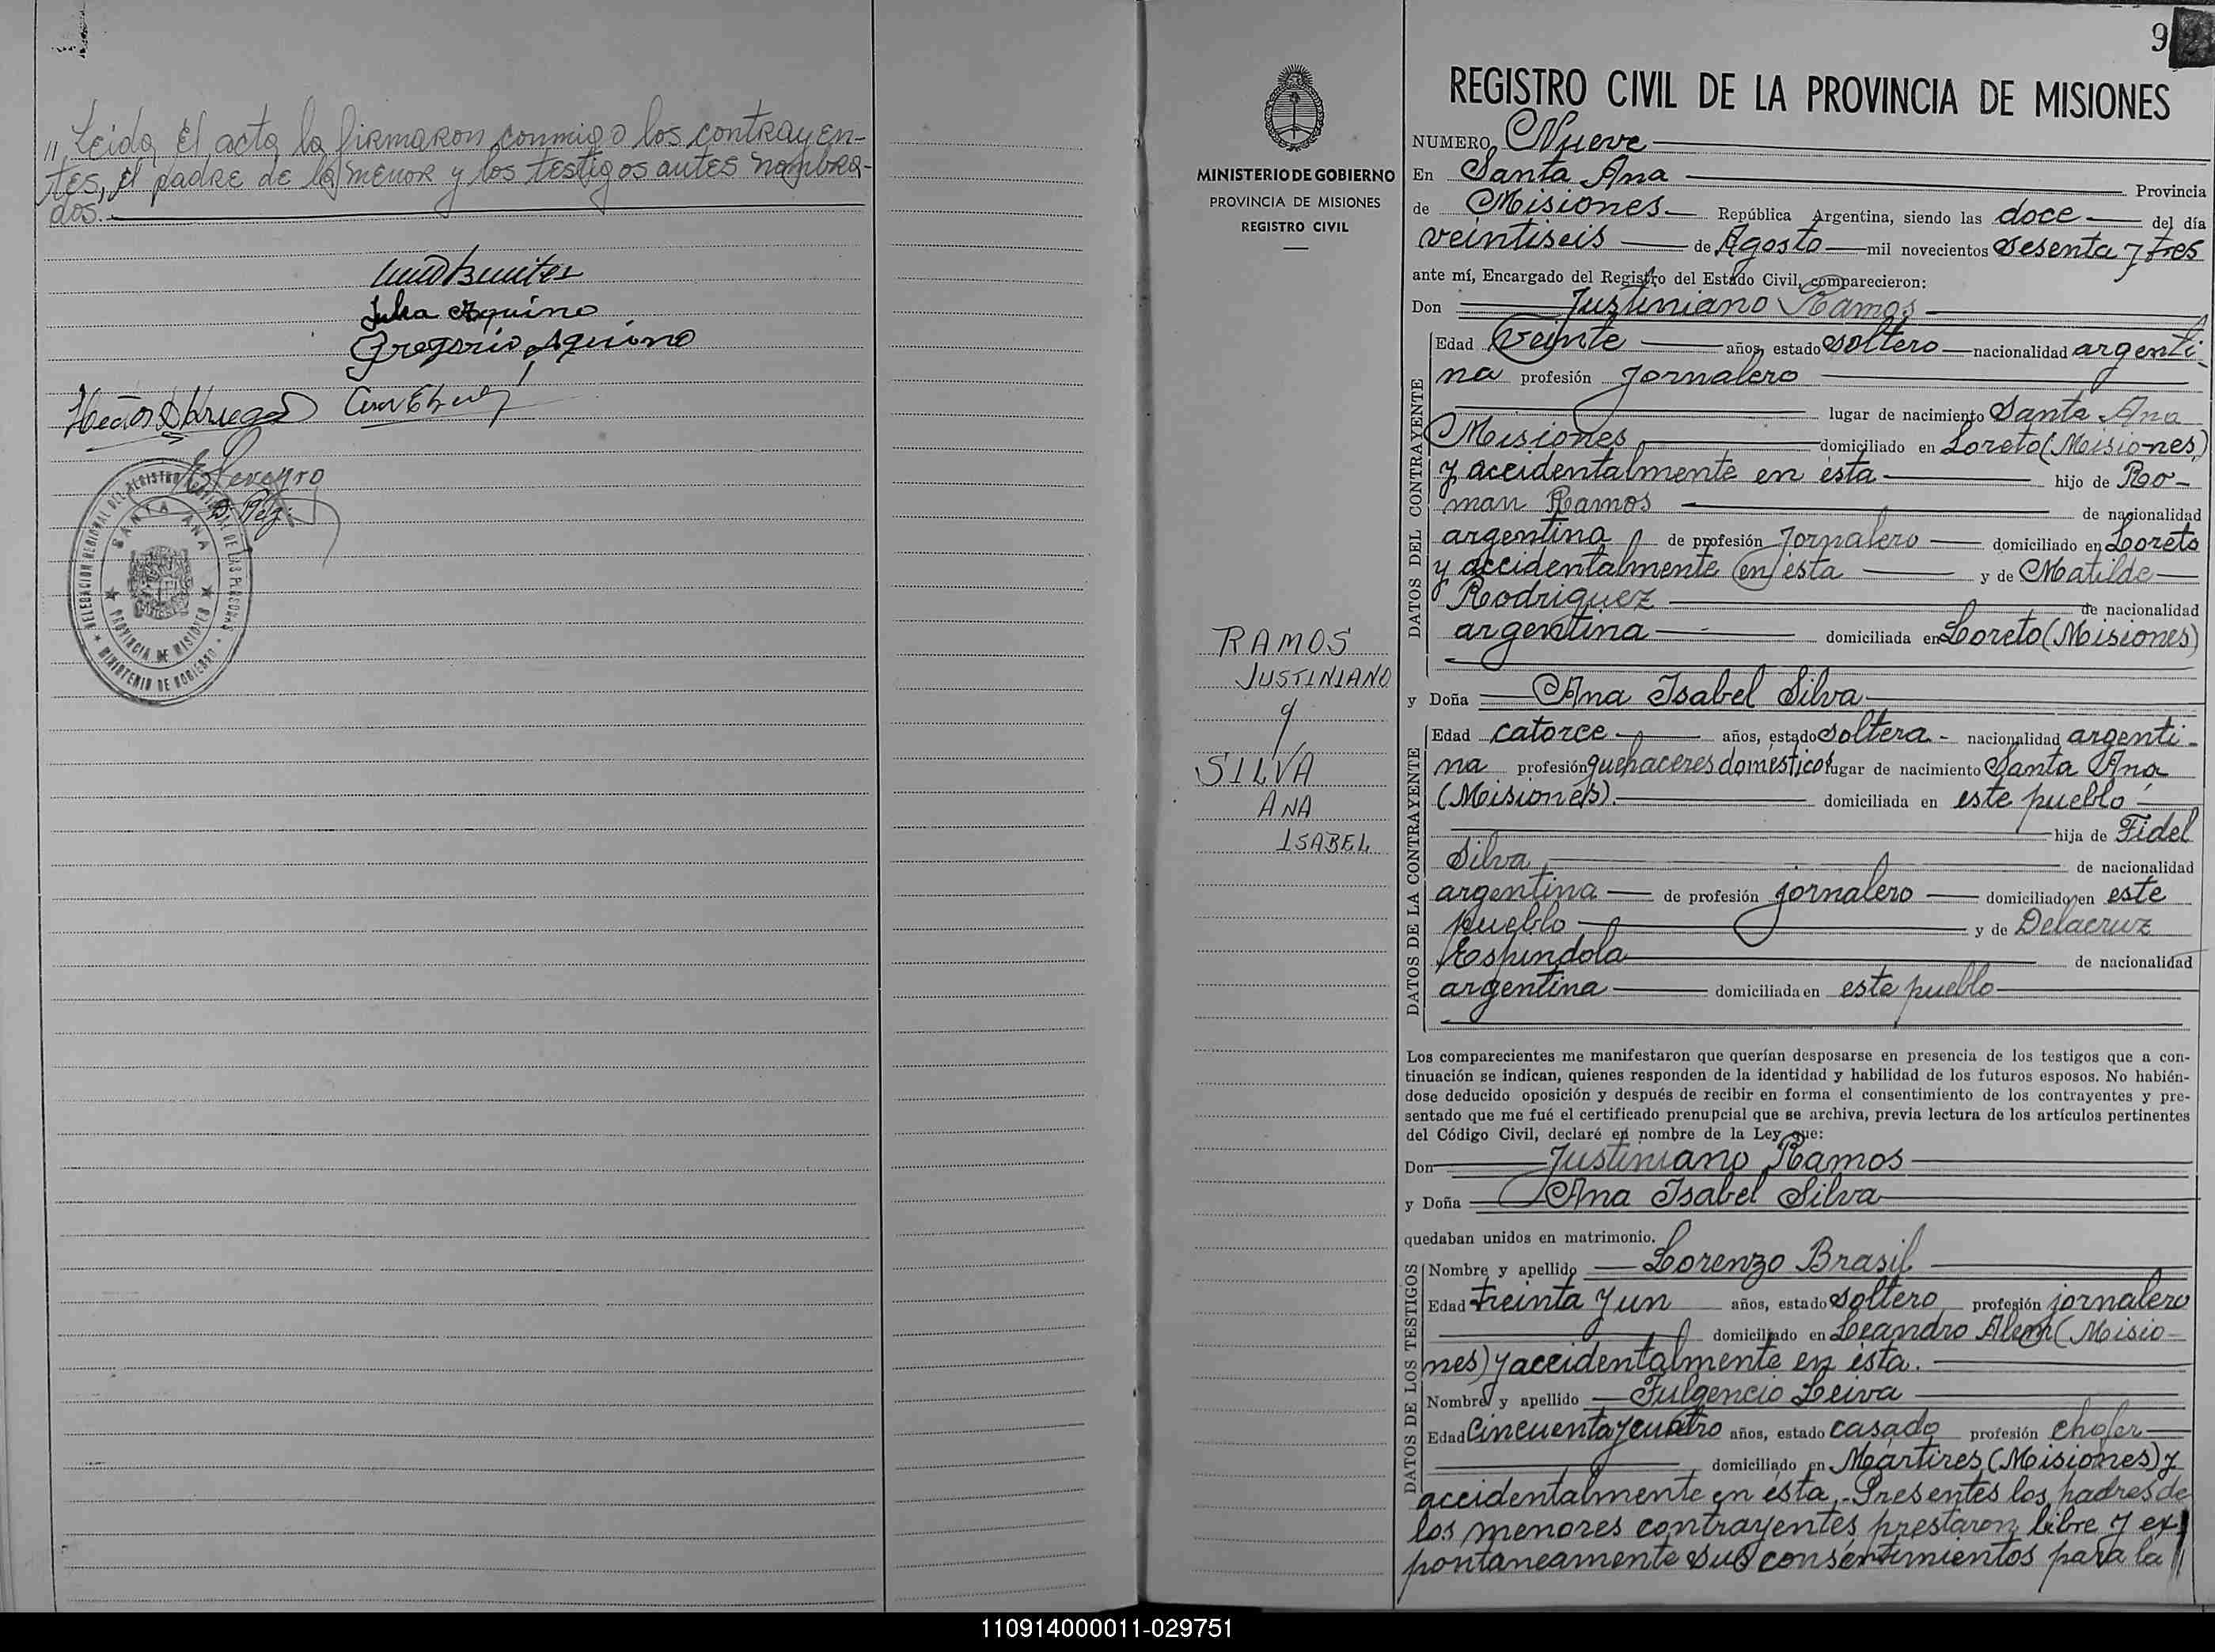 " Leida el acta la firmaron conmigo los contrayen-
tes, el padre de la menor y los testigos antes nombra-
dos.
Benitez
Julia Aquino
Gregorio Aquino
Hector
D. Reg.
DELEGACION REGIONAL DEL REGISTRO DE LAS PERSONAS
SANTA ANA
PROVINCIA DE MISIONES
MINISTERIO DE GOBIERNO
MINISTERIO DE GOBIERNO
PROVINCIA DE MISIONES
REGISTRO CIVIL
RAMOS
JUSTINIANO
y
SILVA
ANA
ISABEL
9
REGISTRO CIVIL DE LA PROVINCIA DE MISIONES
NUMERO Nueve
En Santa Ana Provincia
de Misiones República Argentina, siendo las doce del día
veintiseis de Agosto mil novecientos sesenta y tres
ante mí, Encargado del Registro del Estado Civil, comparecieron:
Don Justiniano Ramos
DATOS DEL CONTRAYENTE
Edad veinte años, estado soltero nacionalidad argenti-
na profesión jornalero
lugar de nacimiento Santa Ana
Misiones domiciliado en Loreto (Misiones)
y accidentalmente en ésta hijo de Ro-
man Ramos de nacionalidad
argentina de profesión jornalero domiciliado en Loreto
y accidentalmente en ésta y de Matilde
Rodriguez de nacionalidad
argentina domiciliada en Loreto (Misiones)
y Doña Ana Isabel Silva
DATOS DE LA CONTRAYENTE
Edad catorce años, estado soltera - nacionalidad argenti-
na profesión quehaceres domésticos lugar de nacimiento Santa Ana
(Misiones). domiciliada en este pueblo
hija de Fidel
Silva de nacionalidad
argentina de profesión jornalero domiciliado en este
pueblo y de Delacruz
Espindola de nacionalidad
argentina domiciliada en este pueblo
Los comparecientes me manifestaron que querían desposarse en presencia de los testigos que a con-
tinuación se indican, quienes responden de la identidad y habilidad de los futuros esposos. No habién-
dose deducido oposición y después de recibir en forma el consentimiento de los contrayentes y pre-
sentado que me fué el certificado prenupcial que se archiva, previa lectura de los artículos pertinentes
del Código Civil, declaré en nombre de la Ley que:
Don Justiniano Ramos
y Doña Ana Isabel Silva
quedaban unidos en matrimonio.
DATOS DE LOS TESTIGOS
Nombre y apellido Lorenzo Brasil
Edad treinta y un años, estado soltero profesión jornalero
domiciliado en Leandro Alem (Misio-
nes) y accidentalmente en ésta.
Nombre y apellido Fulgencio Leiva
Edad Cincuenta y cuatro años, estado casado profesión chofer
domiciliado en Mártires (Misiones) y
accidentalmente en ésta.- Presentes los padres de
los menores contrayentes prestaron libre y ex
pontaneamente sus consentimientos para la //
110914000011-029751